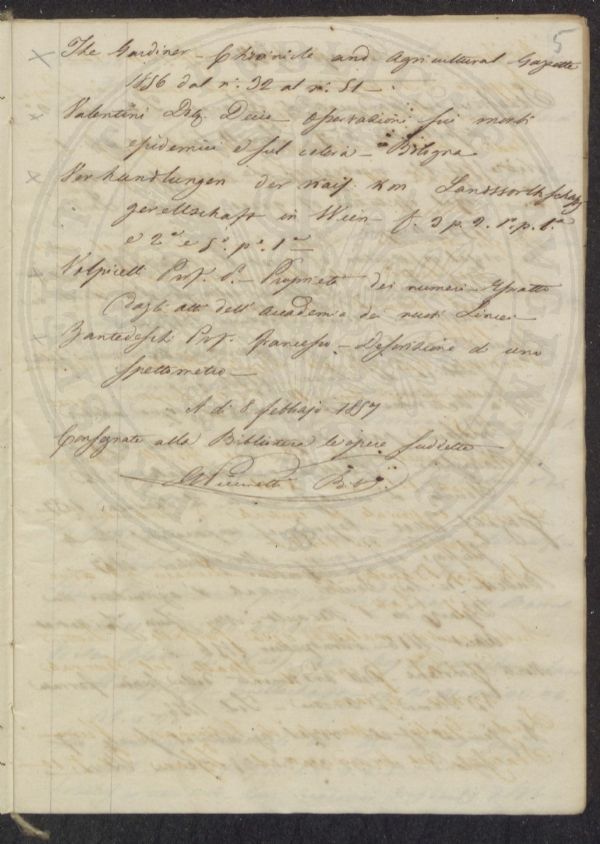 5
The Gardiner - Chronicle and Agricultural Gazette
1856 dal n.° 32 al n.° 51.
Valentini Dr. Decio - Osservazioni sui morbi
epidemici e sul colera - Bologna
Verhandlungen der
gesellschaft in Wien
e 2.a e 5.a p.e 1.a
Volpicelli Prof. P. - Proprietà dei numeri - Estratto
dagli atti dell'Accademia de nuovi Lincei
Zantedeschi Prof. Francesco - Descrizione di uno
spettrometro -
A di 8 febbrajo 1857
Consegnate alla Biblioteca le opere suddette